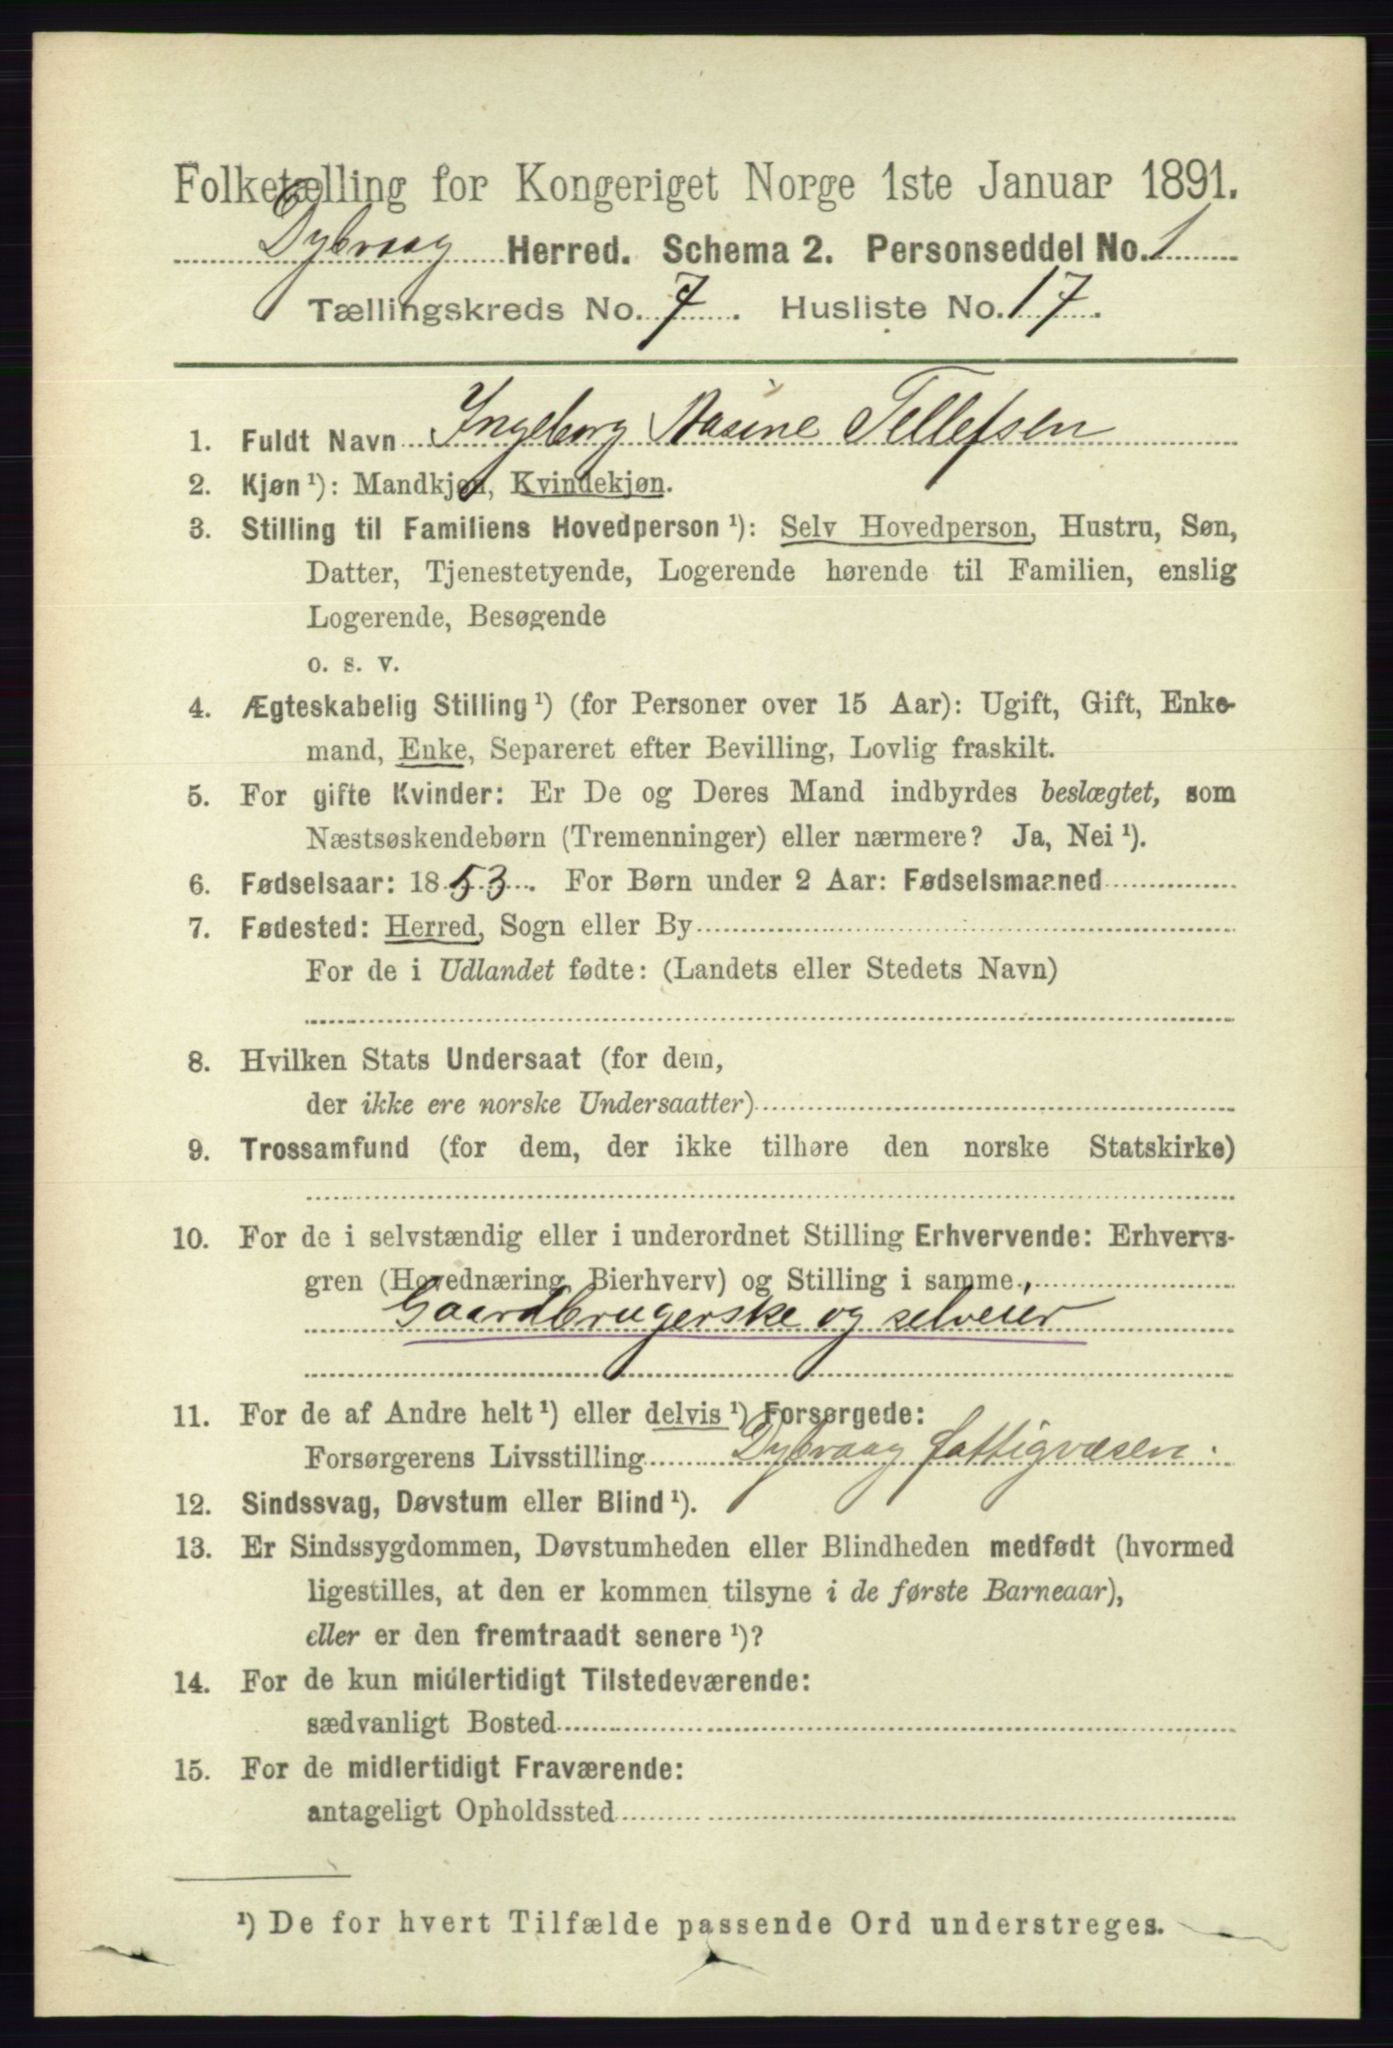 Folketælling for Kongeriget Norge 1ste Januar 1891.
Dybvaag Herred. Schema 2. Personseddel No. 1
Tællingskreds No. 7. Husliste No. 17.
1. Fuldt Navn Ingeborg Aasine Tellefsen
2. Kjøn ¹): Mandkjøn, Kvindekjøn.
3. Stilling til Familiens Hovedperson ¹): Selv Hovedperson, Hustru, Søn,
Datter, Tjenestetyende, Logerende hørende til Familien, enslig
Logerende, Besøgende
o. s. v.
4. Ægteskabelig Stilling ¹) (for Personer over 15 Aar): Ugift, Gift, Enke-
mand, Enke, Separeret efter Bevilling, Lovlig fraskilt.
5. For gifte Kvinder: Er De og Deres Mand indbyrdes beslægtet, som
Næstsøskendebørn (Tremenninger) eller nærmere? Ja, Nei ¹).
6. Fødselsaar: 1853. For Børn under 2 Aar: Fødselsmaaned
7. Fødested: Herred, Sogn eller By
For de i Udlandet fødte: (Landets eller Stedets Navn)
8. Hvilken Stats Undersaat (for dem,
der ikke ere norske Undersaatter)
9. Trossamfund (for dem, der ikke tilhøre den norske Statskirke)
10. For de i selvstændig eller i underordnet Stilling Erhvervende: Erhvervs-
gren (Hovednæring, Bierhverv) og Stilling i samme
Gaardbrugerske og selveier
11. For de af Andre helt ¹) eller delvis ¹) Forsørgede:
Forsørgerens Livsstilling Dybvaag fattigvæsen.
12. Sindssvag, Døvstum eller Blind ¹).
13. Er Sindssygdommen, Døvstumheden eller Blindheden medfødt (hvormed
ligestilles, at den er kommen tilsyne i de første Barneaar),
eller er den fremtraadt senere ¹)?
14. For de kun midlertidigt Tilstedeværende:
sædvanligt Bosted
15. For de midlertidigt Fraværende:
antageligt Opholdssted
¹) De for hvert Tilfælde passende Ord understreges.